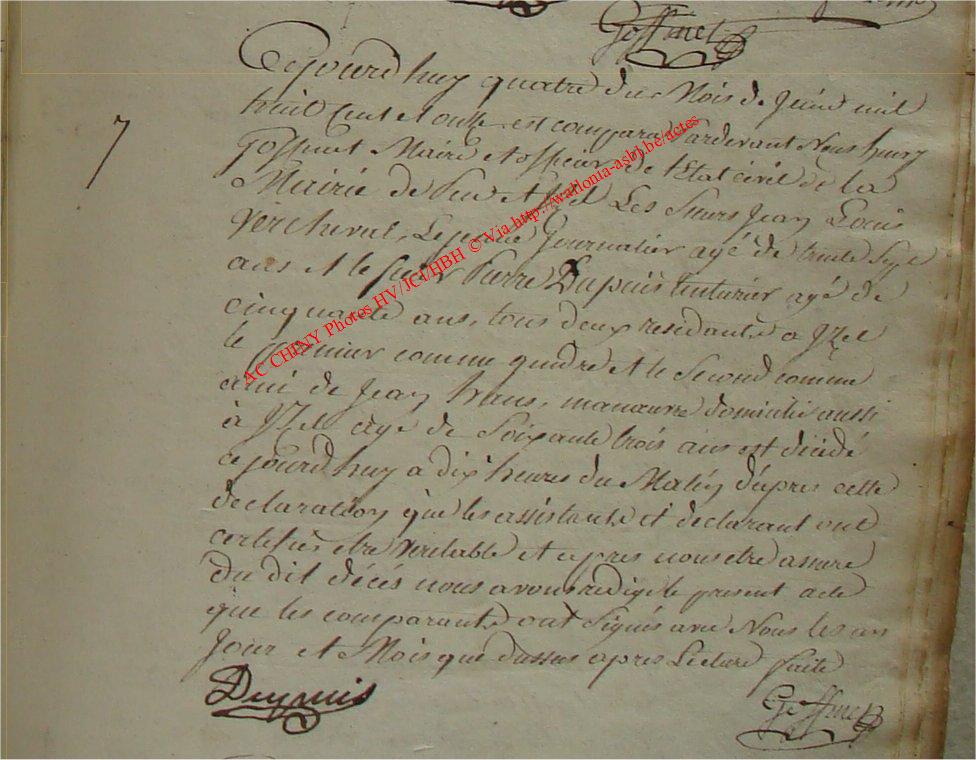 Goffinet
7
Cejourd huy quatre du Mois de Juin mil
huit Cent et onze est comparu Pardevant Nous henry
Goffinet Maire et officier de l'Etat civil de la
Mairie de Les Sieurs Jean Louis
Vercheval, Le jeune Journalier agé de trente Sept
ans et le sieur Pierre Dupuis tinturier agé de
cinquante ans, tous deux residants a Izel
le premier comme gendre et le Second comme
ami de Jean hans, manœuvre domicilié aussi
à Izel age de Soixante trois ans est décédé
cejourd huy a dix heures du Matin d'après cette
declaration que les assistants et declarant ont
certifiés etre Veritable et apres nous etre assuré
Du dit décés nous avons redigé le present acte
que les comparants ont Signés avec Nous les an
Jour et Mois que dessus apres Lecture faite
Dupuis
Goffinet
AC CHINY Photos HV/JCI/HBH © Via http://wallonia-asbl.be/actes